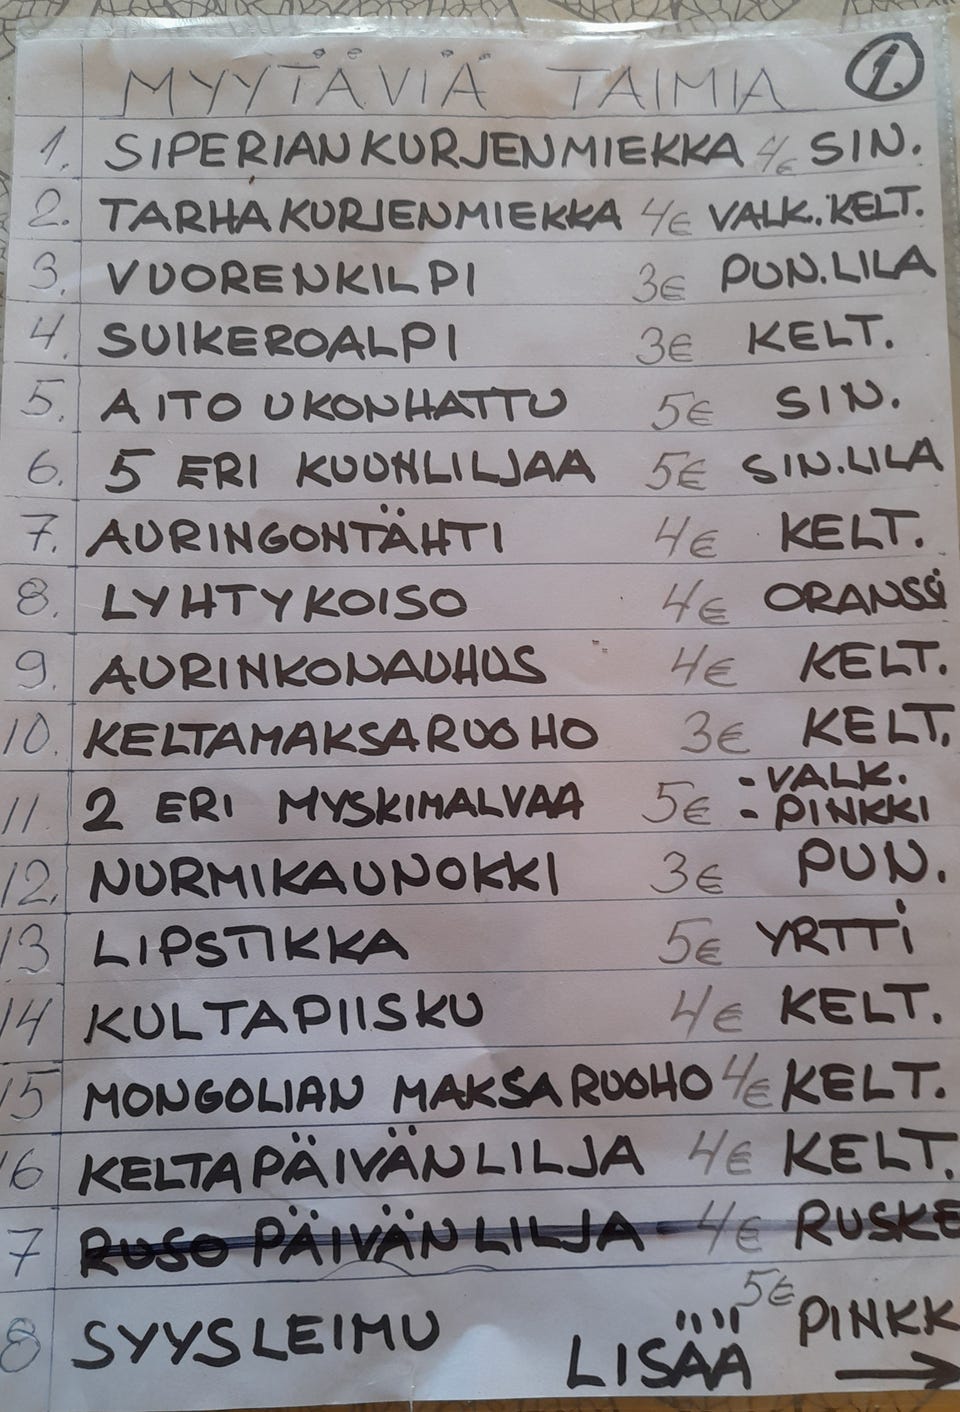 MYYTÄVIÄ TAIMIA 1.
1. SIPERIANKURJENMIEKKA 4€ SIN.
2. TARHAKURJENMIEKKA 4€ VALK.KELT.
3. VUORENKILPI 3€ PUN.LILA
4. SUIKEROALPI 3€ KELT.
5. AITO UKONHATTU 5€ SIN.
6. 5 ERI KUUNLILJAA 5€ SIN.LILA
7. AURINGONTÄHTI 4€ KELT.
8. LYHTYKOISO 4€ ORANSSI
9. AURINKONAUHUS 4€ KELT.
10. KELTAMAKSARUOHO 3€ KELT.
11. 2 ERI MYSKIMALVAA 5€ - VALK.
- PINKKI
12. NURMIKAUNOKKI 3€ PUN.
13 LIPSTIKKA 5€ YRTTI
14 KULTAPIISKU 4€ KELT.
15 MONGOLIAN MAKSARUOHO 4€ KELT.
16 KELTAPÄIVÄNLILJA 4€ KELT.
7 RUSOPÄIVÄNLILJA 4€ RUSKE
8 SYYSLEIMU 5€ PINKK
LISÄÄ →